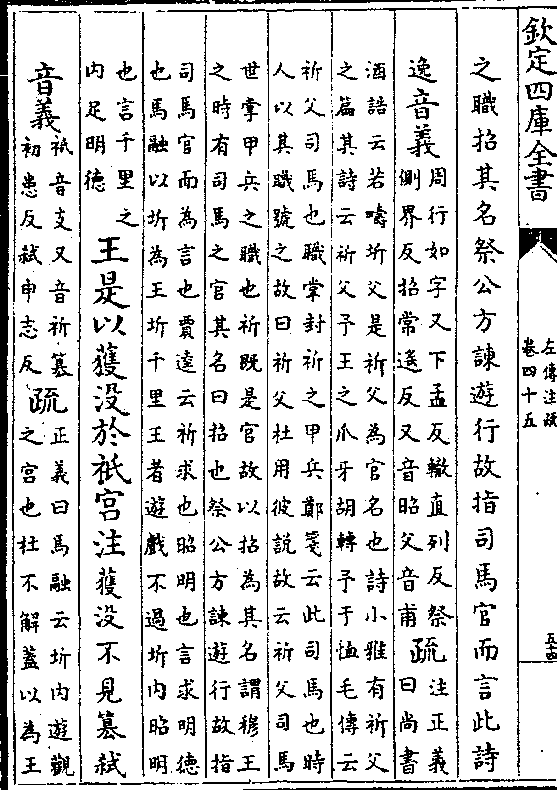 欽定四庫全書
左傳注疏
卷四十五
五十四
之職招其名祭公方諫遊行故指司馬官而言此詩
逸音義周行如字又下孟反轍直列反祭
側界反招常遙反又音昭父音甫疏注正義
曰尚書
酒誥云若疇圻父是祈父為官名也詩小雅有祈父
之篇其詩云祈父予王之爪牙胡轉予于恤毛傳云
祈父司馬也職掌封祈之甲兵鄭箋云此司馬也時
人以其職號之故曰祈父杜用彼說故云祈父司馬
世掌甲兵之職也祈既是官故以招為其名謂穆王
之時有司馬之官其名曰招也祭公方諫遊行故指
司馬官而為言也賈逵云祈求也昭明也言求明德
也馬融以圻為王圻千里王者遊戲不過圻內昭明
也言千里之
內足明德
王是以獲没於祗宮注獲没不見篡弒
音義祗音支又音祈篡
初患反弒申志反疏正義曰馬融云圻内遊觀
之宮也杜不解蓋以為王